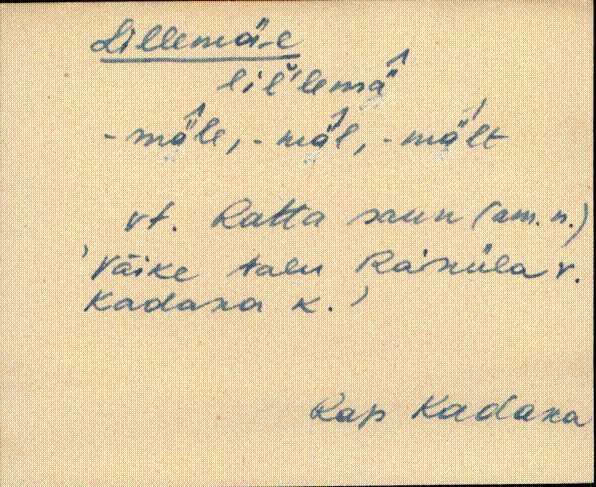 Lillemä-e
lil'lemä̂
-mä̂le, -mä̂l, -mä̂lt
vt. Ratta saun (am. n.)
'Väike talu Raiküla v.
Kadaka k.'
Rap Kadaka